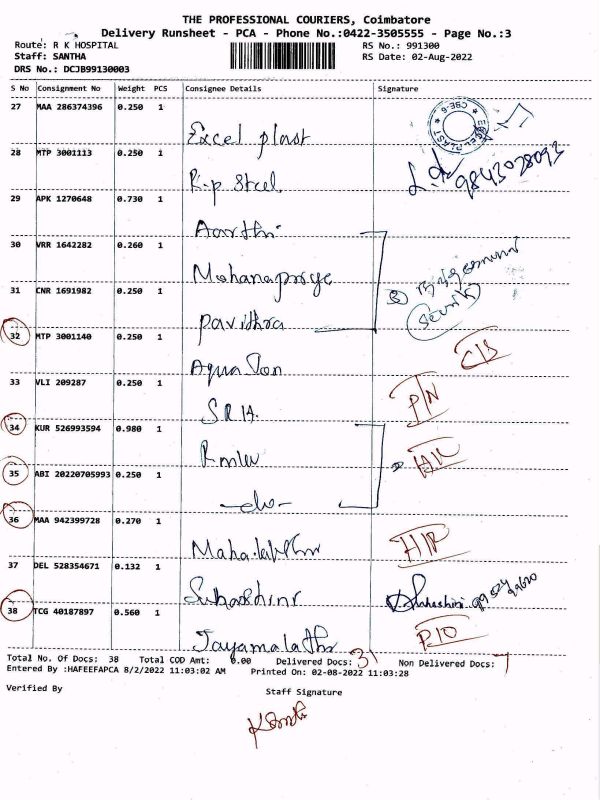 THE PROFESSIONAL COURIERS, Coimbatore
Delivery Runsheet - PCA - Phone No.:0422-3505555 - Page No.:3
Route: R K HOSPITAL RS No.: 991300
Staff: SANTHA RS Date: 02-Aug-2022
DRS No.: DCJB99130003
S No Consignment No Weight PCS Consignee Details Signature
27 MAA 286374396 0.250 1
Excel plast
EXCEL PLAST CBE-6
28 MTP 3001113 0.250 1
R.p Steel
9843028093
29 APK 1270648 0.730 1
Aarthi
30 VRR 1642282 0.260 1
Mohanapriya
31 CNR 1691982 0.250 1
Pavithra
32 MTP 3001140 0.250 1
Aqua Ion
33 VLI 209287 0.250 1
P/N
34 KUR 526993594 0.980 1
35 ABI 20220705993 0.250 1
-do-
36 MAA 942399728 0.270 1
37 DEL 528354671 0.132 1
Subashini
38 TCG 40187897 0.560 1
Jayamalathi
Total No. Of Docs: 38 Total COD Amt: 0.00 Delivered Docs: 31 Non Delivered Docs: 7
Entered By :HAFEEFAPCA 8/2/2022 11:03:02 AM Printed On: 02-08-2022 11:03:28
Verified By Staff Signature